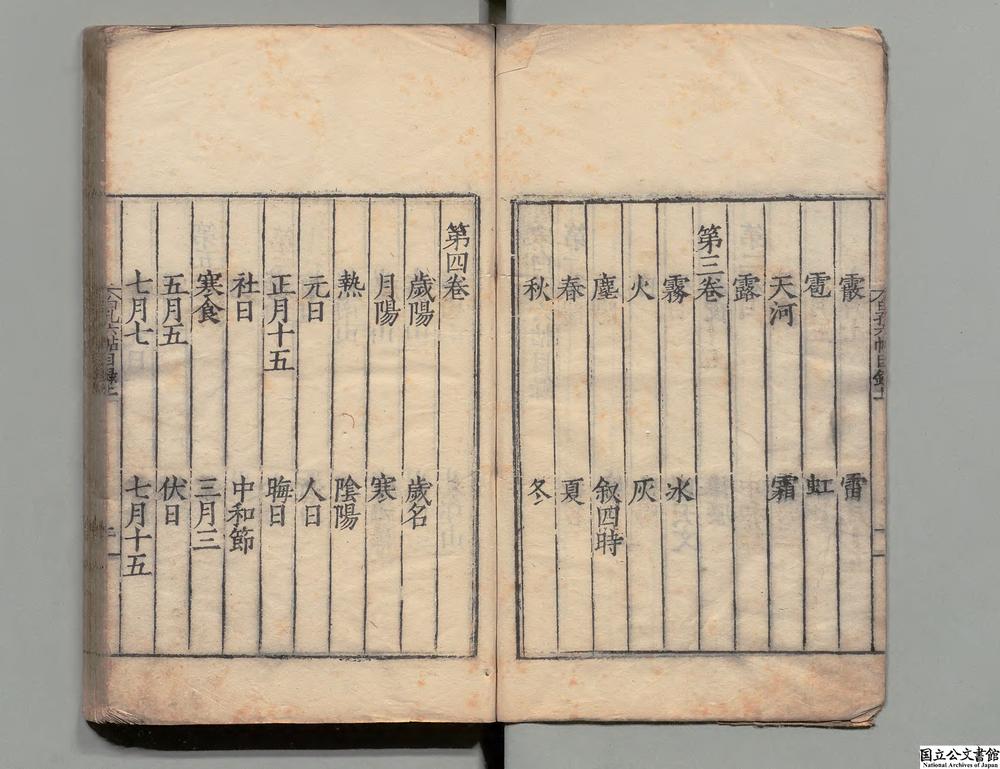 霰 雷
雹 虹
天河 霜
露
第三卷
霧 氷
火 灰
塵 叙四時
春 夏
秋 冬
第四卷
歲陽 歲名
月陽 寒
熱 陰陽
元日 人日
正月十五 晦日
社日 中和節
寒食 三月三
五月五 伏日
七月七 七月十五
国立公文書館
National Archives of Japan